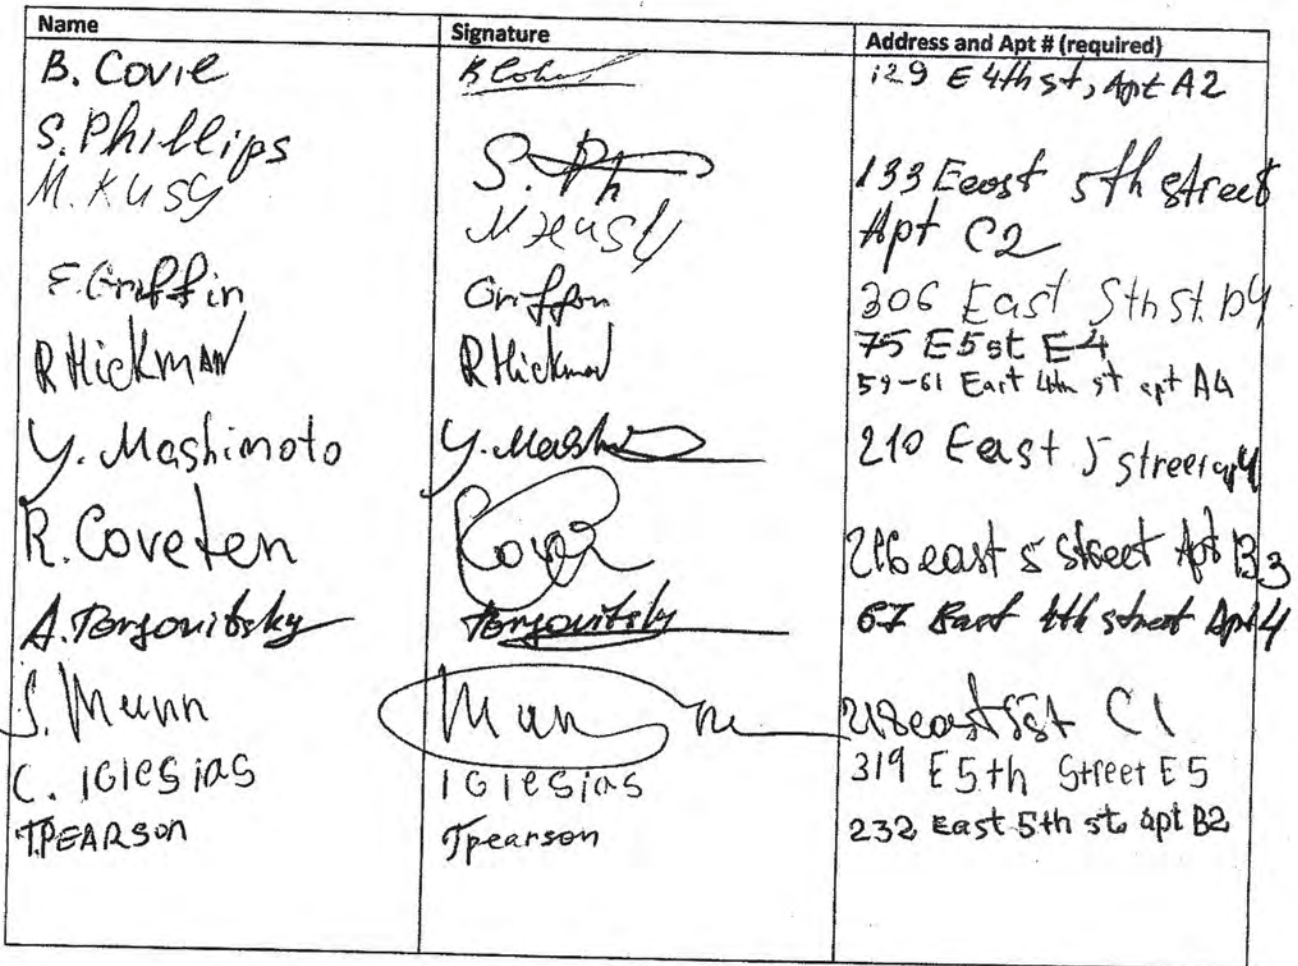 Name Signature Address and Apt # (required)
B. Covie B Coh 129 E 4th st, Apt A2
S. Phillips S. Ph 133 East 5th street
Apt C2
M. Kusy M Kusy 306 East 5th St. D4
E. Griffin Griffin 75 E 5 st E-4
R Hickman R Hickman 59-61 East 4th st apt A4
Y. Mashimoto Y. Mash 210 East 5 street 4
R. Coveten Cover 216 east 5 street Apt B3
A. Torgovitsky Torgovitsky 67 East 4th street Apt 4
S. Munn Munn 218 east 5st C1
C. IGlesias IGlesias 319 E 5th Street E5
T.PEARSON Tpearson 232 East 5th st. apt B2